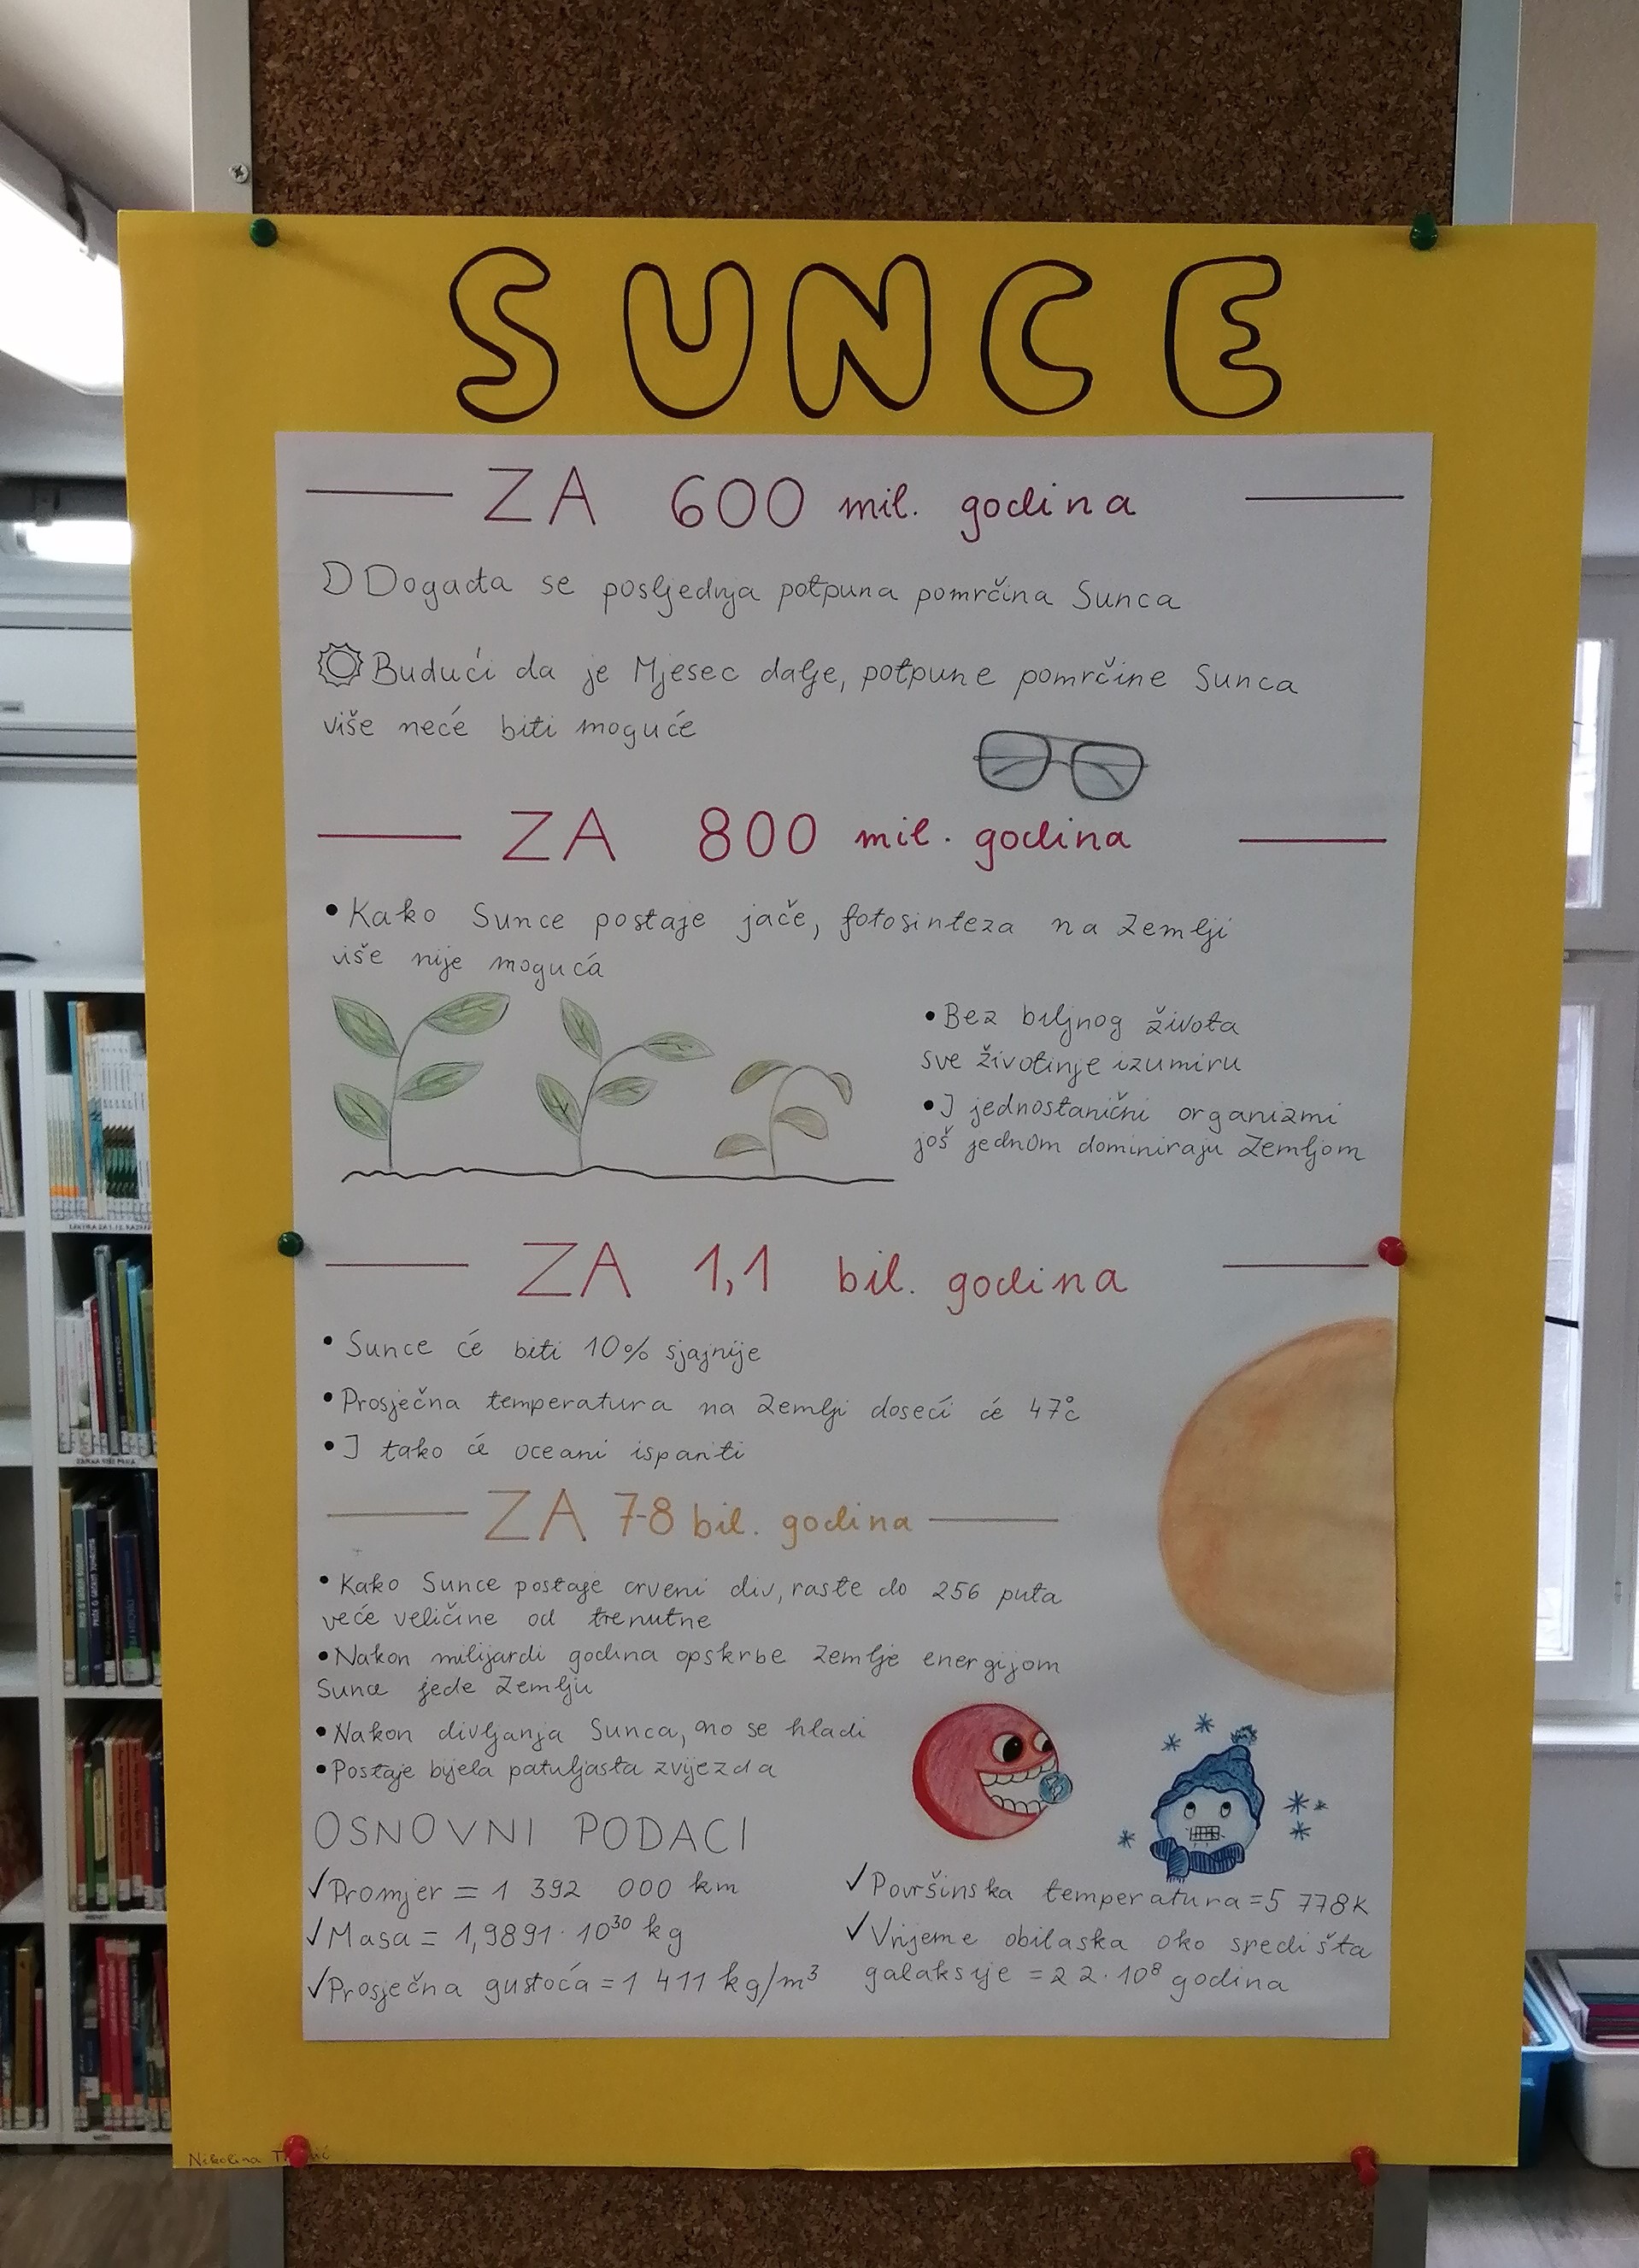 SUNCE
ZA 600 mil. godina
Događa se posljednja potpuna pomrčina Sunca
Budući da je Mjesec dalje, potpune pomrčine Sunca
više neće biti moguće
ZA 800 mil. godina
• Kako Sunce postaje jače, fotosinteza na Zemlji
više nije moguća
• Bez biljnog života
sve životinje izumiru
• I jednostanični organizmi
još jednom dominiraju Zemljom
ZA 1,1 bil. godina
• Sunce će biti 10% sjajnije
• Prosječna temperatura na Zemlji doseći će 47°C
• I tako će oceani ispariti
ZA 7-8 bil. godina
• Kako Sunce postaje crveni div, raste do 256 puta
veće veličine od trenutne
• Nakon milijardi godina opskrbe Zemlje energijom
Sunce jede Zemlju
• Nakon divljanja Sunca, ono se hladi
• Postaje bijela patuljasta zvijezda
OSNOVNI PODACI
✓ Promjer = 1 392 000 km
✓ Masa = 1,9891 · 10³⁰ kg
✓ Prosječna gustoća = 1 411 kg/m³
✓ Površinska temperatura = 5 778K
✓ Vrijeme obilaska oko središta
galaksije = 2 2 · 10⁸ godina
Nikolina